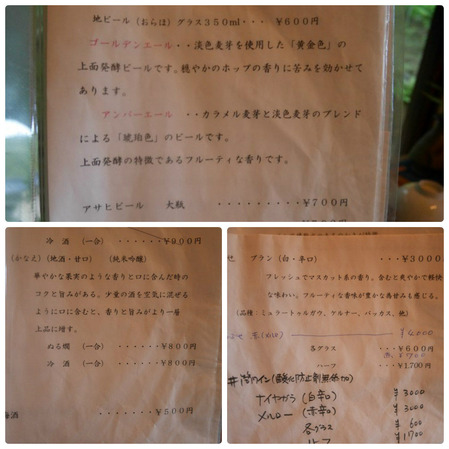 地ビール（おらほ）グラス350ml・・・ ￥600円
ゴールデンエール・・淡色麦芽を使用した「黄金色」の
上面発酵ビールです。穏やかのホップの香りに苦みを効かせて
あります。
アンバーエール ・・カラメル麦芽と淡色麦芽のブレンド
による「琥珀色」のビールです。
上面発酵の特徴であるフルーティな香りです。
アサヒビール 大瓶 ・・・・・・・・・￥700円
冷 酒 （一合） ・・・・・・￥900円
（かなえ）（地酒・甘口） （純米吟醸）
華やかな果実のような香りと口に含んだ時の
コクと旨みがある。少量の酒を空気に混ぜる
ように口に含むと、香りと旨みがより一層
上品に増す。
ぬる燗 （一合） ・・・・・・￥800円
冷 酒 （一合） ・・・・・・￥800円
梅酒 ・・・・・・￥500円
ブラン（白・辛口） ・・・￥3000
フレッシュでマスカット系の香り。含むと爽やかで軽快
な味わい。フルーティな香味が豊かな喬甘みも感じる。
（品種：ミュラートゥルガウ、ケルナー、バッカス、他）
￥4000
各グラス ・・・￥600円
ハーフ ・・・￥1,700円
ナイヤガラ（白辛口） ￥3000
メルロー（赤辛口） ￥3000
各グラス ￥600
ハーフ ￥1700